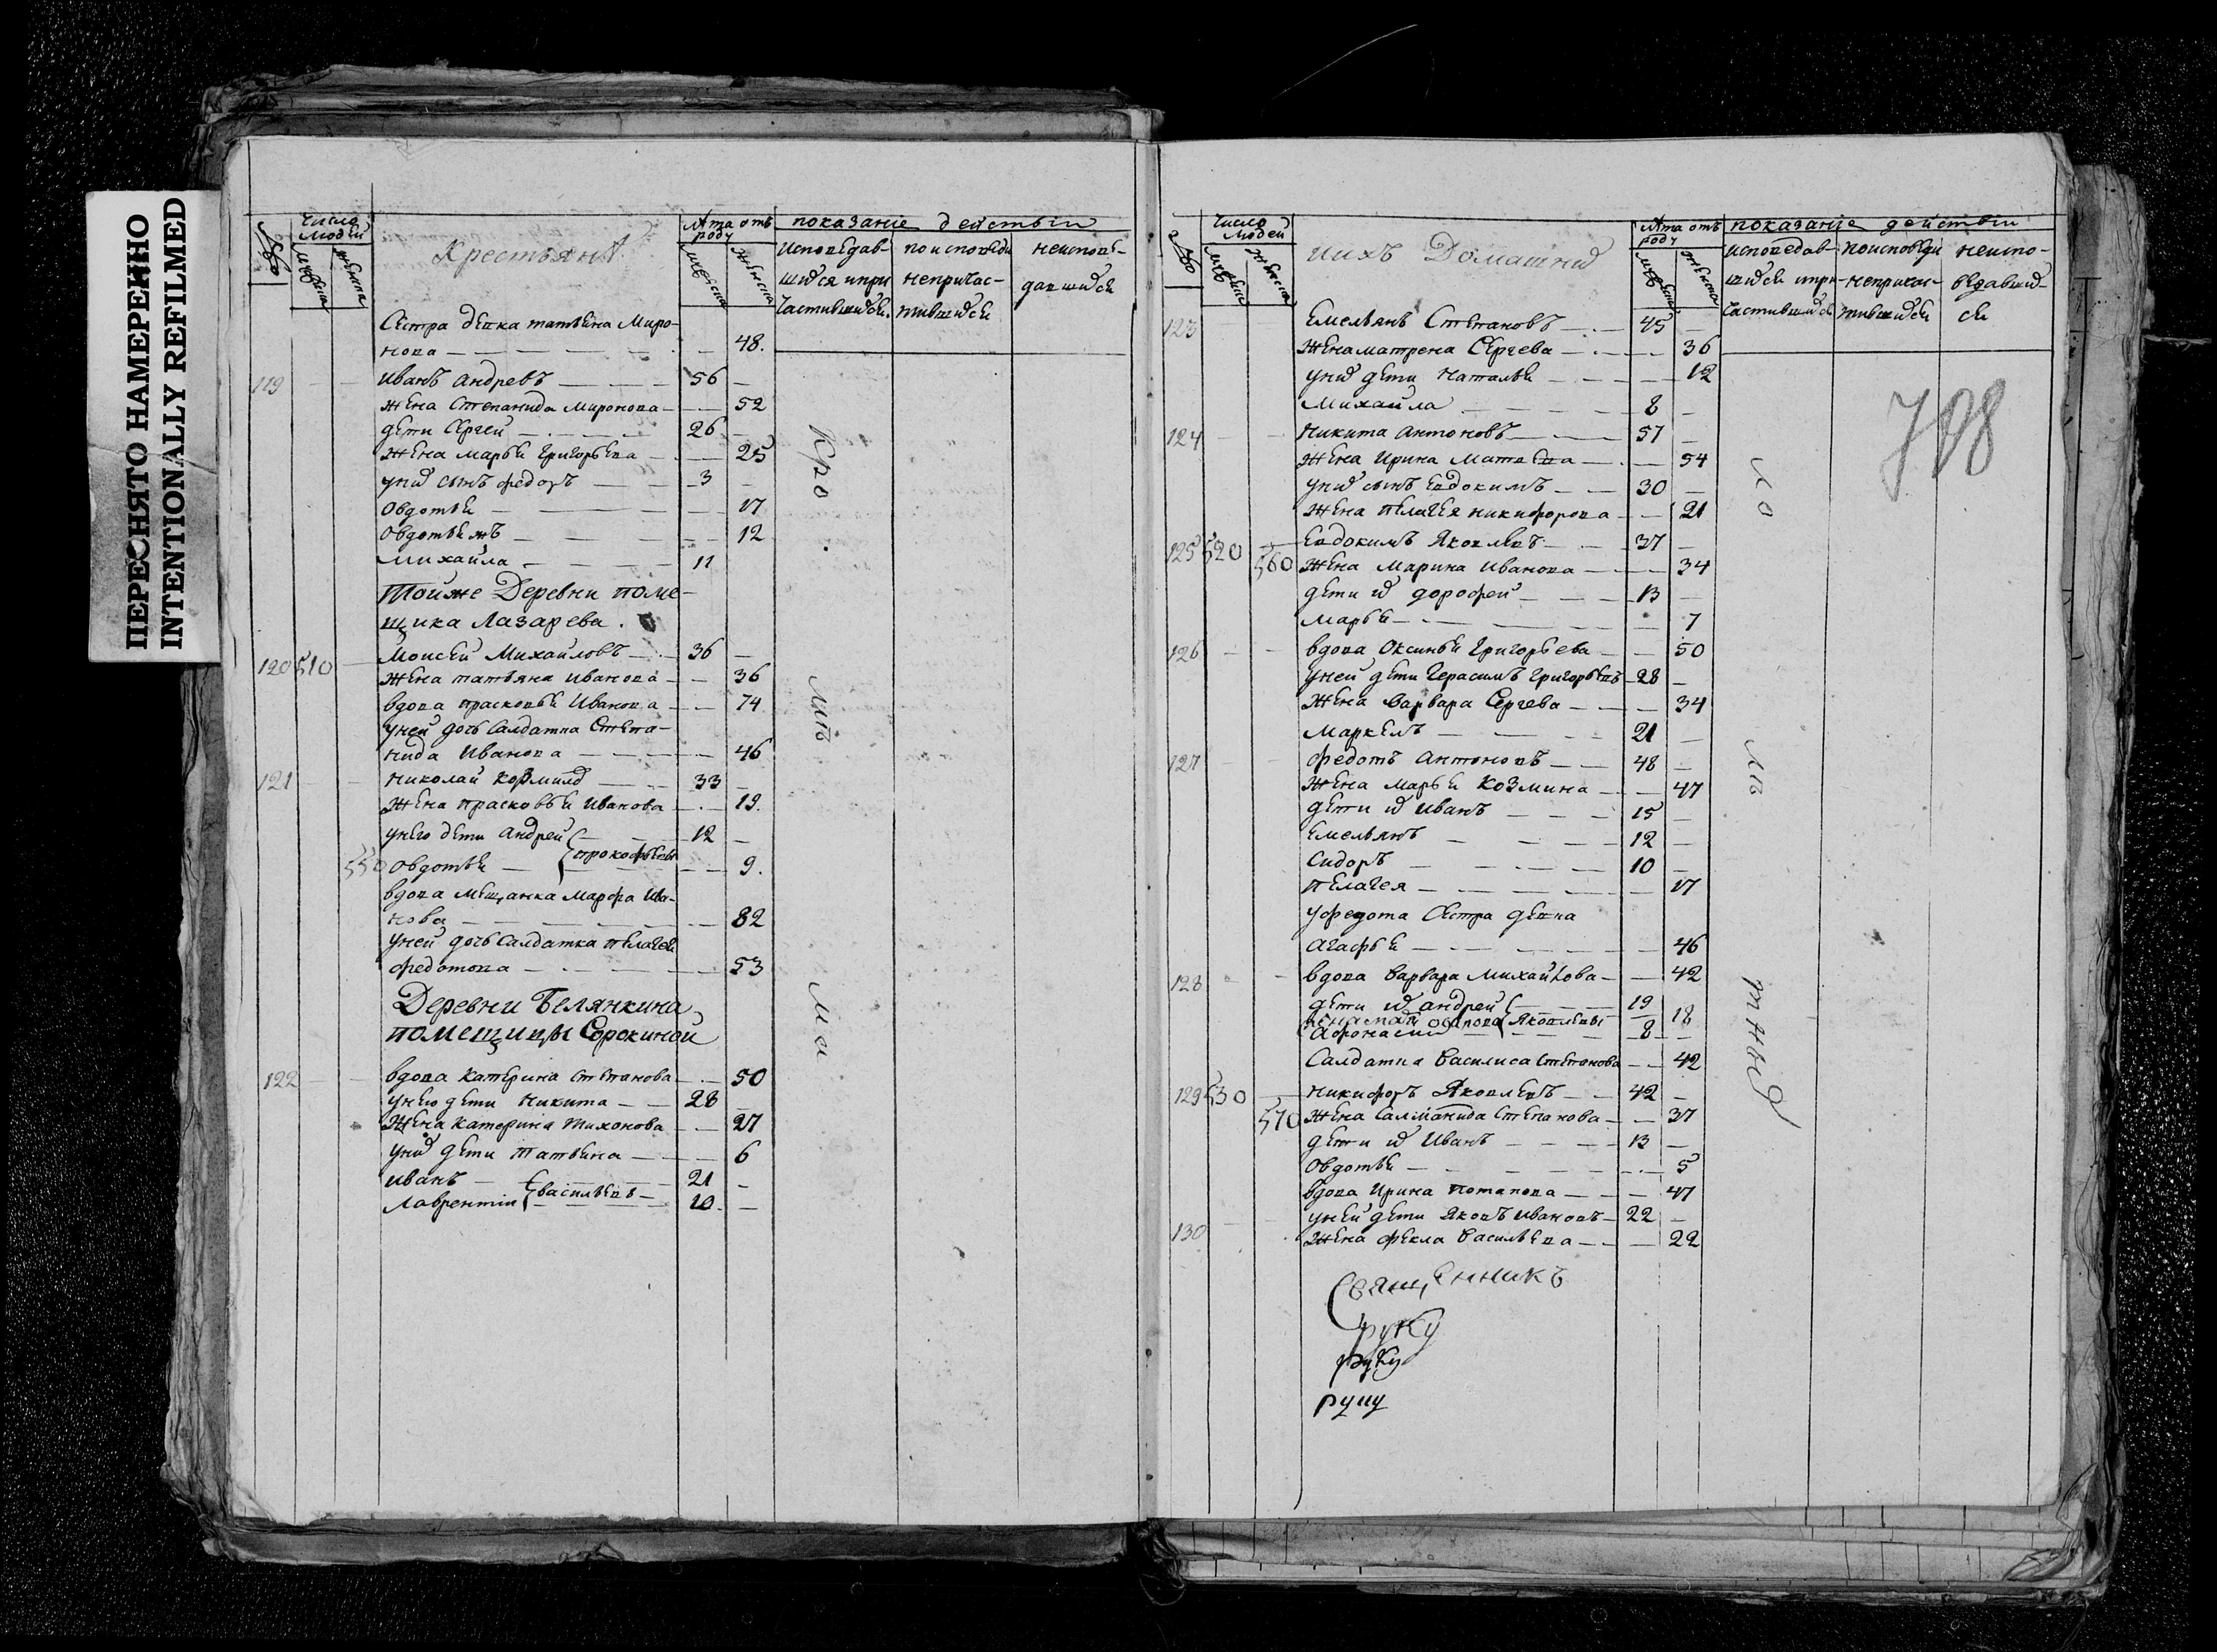 ПЕРЕСНЯТО НАМЕРЕННО
INTENTIONALLY REFILMED
число людей
Крестьянъ
лѣта отъ роду
показаніе действъ
исповѣдав- по исповѣди неиспове-
шихся и при непричас- давшихся
частившихся. тившихся
Сестра девка татьяна Миро-
нова 48.
119 Иванъ андревъ 56
жена Степанида миронова 52
дети Сергей 26
жена марья григорьева 25
у них сынъ федоръ 3
овдотья 17
овдотья жъ 12
михайла 11
Той же Деревни поме-
щика Лазарева.
120 510 Моисей Михайловъ 36
жена татьяна иванова 36
вдова прасковья Иванова 74
у ней дочь салдатка Степа-
нида Иванова 46
121 николай козминъ 33
жена прасковья иванова 19.
у него дети андрей 12
прокофьевы
550 овдотья 9.
вдова мещанка марфа ива-
нова 82
у ней дочь салдатка пелагея
федотова 53
Деревни Белянкина
помещицы Сорокиной
122 вдова катерина степанова 50
у него дети никита 28
жена катерина тихонова 27
у них дети татьяна 6
иванъ 21
васильевы
лаврентий 10
Кро
мѣ
ма
число людей
ихъ Домашних
лѣта отъ роду
показаніе действіи
исповедав- по исповѣди неиспо-
шихся и при- непричас- ведавших-
частившихся тившихся ся
798
123 Емельянъ Степановъ 45
жена матрена Сергева 36
у них дети наталья 12
михайла 8
124 никита антоновъ 57
жена ирина матвева 54
у них сынъ евдокимъ 30
жена пелагея никифорова 21
125 520 евдокимъ яковлевъ 37
560 жена марина иванова 34
дети их дорофей 13
марья 7
126 вдова оксинья григорьева 50
у ней дети герасимъ григорьевъ 28
жена варвара Сергева 34
маркелъ 21
127 федотъ антоновъ 48
жена марья козмина 47
дети их иванъ 15
емельянъ 12
сидоръ 10
пелагея 17
у федота сестра девка
агафья 46
128 вдова варвара михайлова 42
дети их андрей 19
яковлевы 18
афонасий 8
салдатка василиса степанова 42
129 530 никифоръ яковлевъ 42
570 жена саламанида степанова 37
дети их иванъ 13
овдотья 5
вдова ирина потапова 47
у ней дети яковъ ивановъ 22
130 жена фекла васильева 22
Священникъ
руку
руку
руку